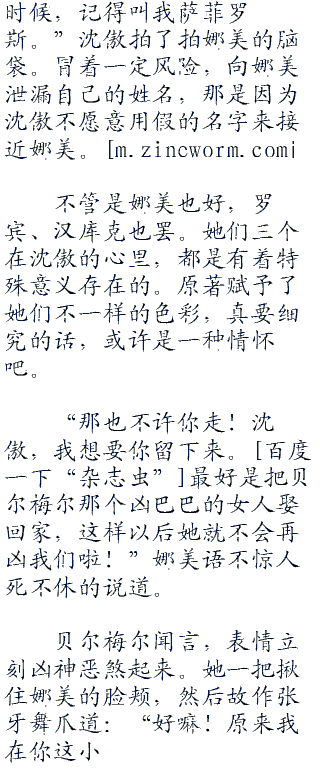 时候，记得叫我萨菲罗
斯。”沈傲拍了拍娜美的脑
袋。冒着一定风险，向娜美
泄漏自己的姓名，那是因为
沈傲不愿意用假的名字来接
近娜美。[m.zincworm.com]
不管是娜美也好，罗
宾、汉库克也罢。她们三个
在沈傲的心里，都是有着特
殊意义存在的。原著赋予了
她们不一样的色彩，真要细
究的话，或许是一种情怀
吧。
“那也不许你走！沈
傲，我想要你留下来。[百度
一下“杂志虫”]最好是把贝
尔梅尔那个凶巴巴的女人娶
回家，这样以后她就不会再
凶我们啦！”娜美语不惊人
死不休的说道。
贝尔梅尔闻言，表情立
刻凶神恶煞起来。她一把揪
住娜美的脸颊，然后故作张
牙舞爪道：“好嘛！原来我
在你这小